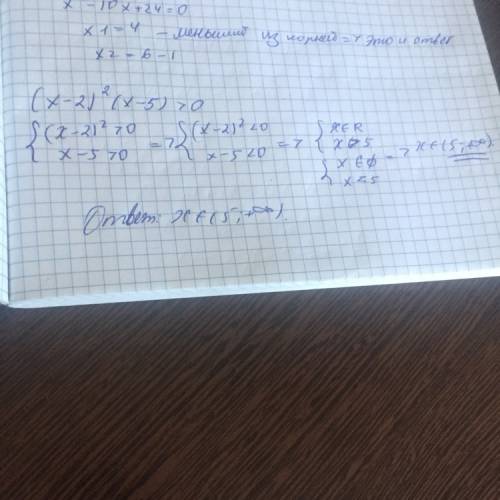 x² - 10x + 24 = 0
x1 = 4 – меньший из корней => это и ответ
x2 = 6 - 1
(x-2)² (x-5) > 0
{ (x-2)² > 0 => { (x-2)² < 0 => { x∈R
x-5 > 0 x-5 < 0 x > 5 => x∈(5; +∞)
{ x∈ø
x < 5
Ответ: x∈(5; +∞).